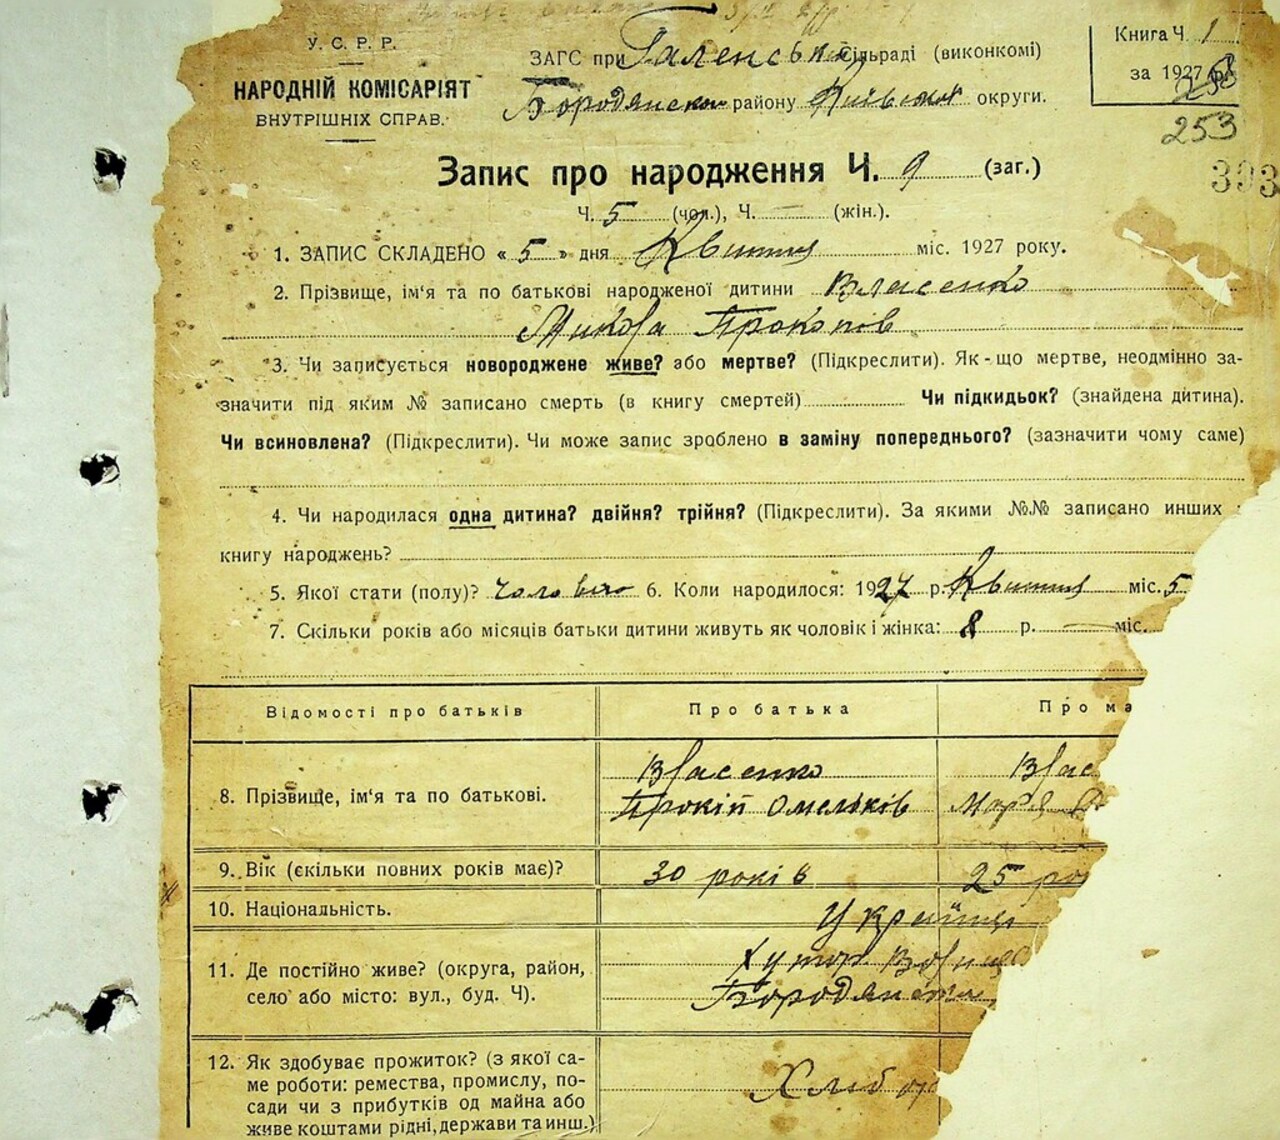 У. С. Р. Р.
НАРОДНІЙ КОМІСАРІЯТ
ВНУТРІШНІХ СПРАВ.
ЗАГС при Галенські Сільраді (виконкомі)
Бородянськ району Київськ округи.
Книга Ч. 1
за 1927 р.
253
393
Запис про народження Ч. 9 (заг.)
Ч. 5 (чол.), Ч. — (жін.).
1. ЗАПИС СКЛАДЕНО « 5 » дня Квітня міс. 1927 року.
2. Прізвище, ім'я та по батькові народженої дитини Власенко
Микола Прокопів
3. Чи записується новороджене живе? або мертве? (Підкреслити). Як-що мертве, неодмінно за-
значити під яким № записано смерть (в книгу смертей) Чи підкидьок? (знайдена дитина).
Чи всиновлена? (Підкреслити). Чи може запис зроблено в заміну попереднього? (зазначити чому саме)
4. Чи народилася одна дитина? двійня? трійня? (Підкреслити). За якими №№ записано инших
книгу народжень?
5. Якої стати (полу)? 6. Коли народилося: 1927 р. Квітня міс. 5
7. Скільки років або місяців батьки дитини живуть як чоловік і жінка: 8 р. — міс.
Відомості про батьків Про батька Про ма
8. Прізвище, ім'я та по батькові.
Власенко Влас
Прокіп Омельків Марія
9. Вік (скільки повних років має)? 30 років 25 ро
10. Національність. Українці
11. Де постійно живе? (округа, район,
село або місто: вул., буд. Ч).
Хутор
Бородянськ
12. Як здобуває прожиток? (з якої са-
ме роботи: ремества, промислу, по-
сади чи з прибутків од майна або
живе коштами рідні, держави та инш.)
Хліб